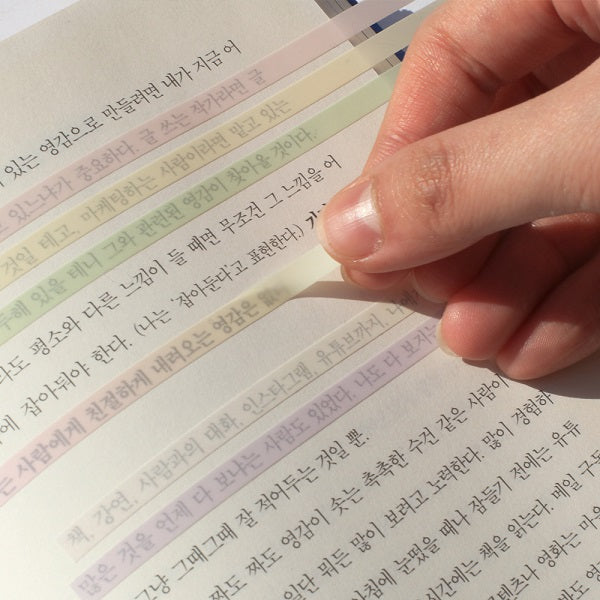 있는 영감으로 만들려면 내가 지금 어
있느냐가 중요하다. 글 쓰는 작가라면 글
것일 테고, 마케팅하는 사람이라면 맡고 있는
해 있을 테니 그와 관련된 영감이 찾아올 것이다.
라도 평소와 다른 느낌이 들 때면 무조건 그 느낌을 어
에 잡아둬야 한다. (나는 '잡아둔다'고 표현한다.)
는 사람에게 친절하게 내려오는 영감은
책, 강연, 사람과의 대화, 인스타그램, 유튜브까지,
많은 것을 언제 다 보냐는 사람도 있었다. 나도 다 보지는
그냥 그때그때 잘 적어두는 것일 뿐.
짜도 짜도 영감이 솟는 촉촉한 수건 같은 사람이
일단 뭐든 많이 보려고 노력한다. 많이 경험하
아침에 눈떴을 때나 잠들기 전에는 유튜
시간에는 책을 읽는다. 메일 구독
텐츠나 영화는 마음